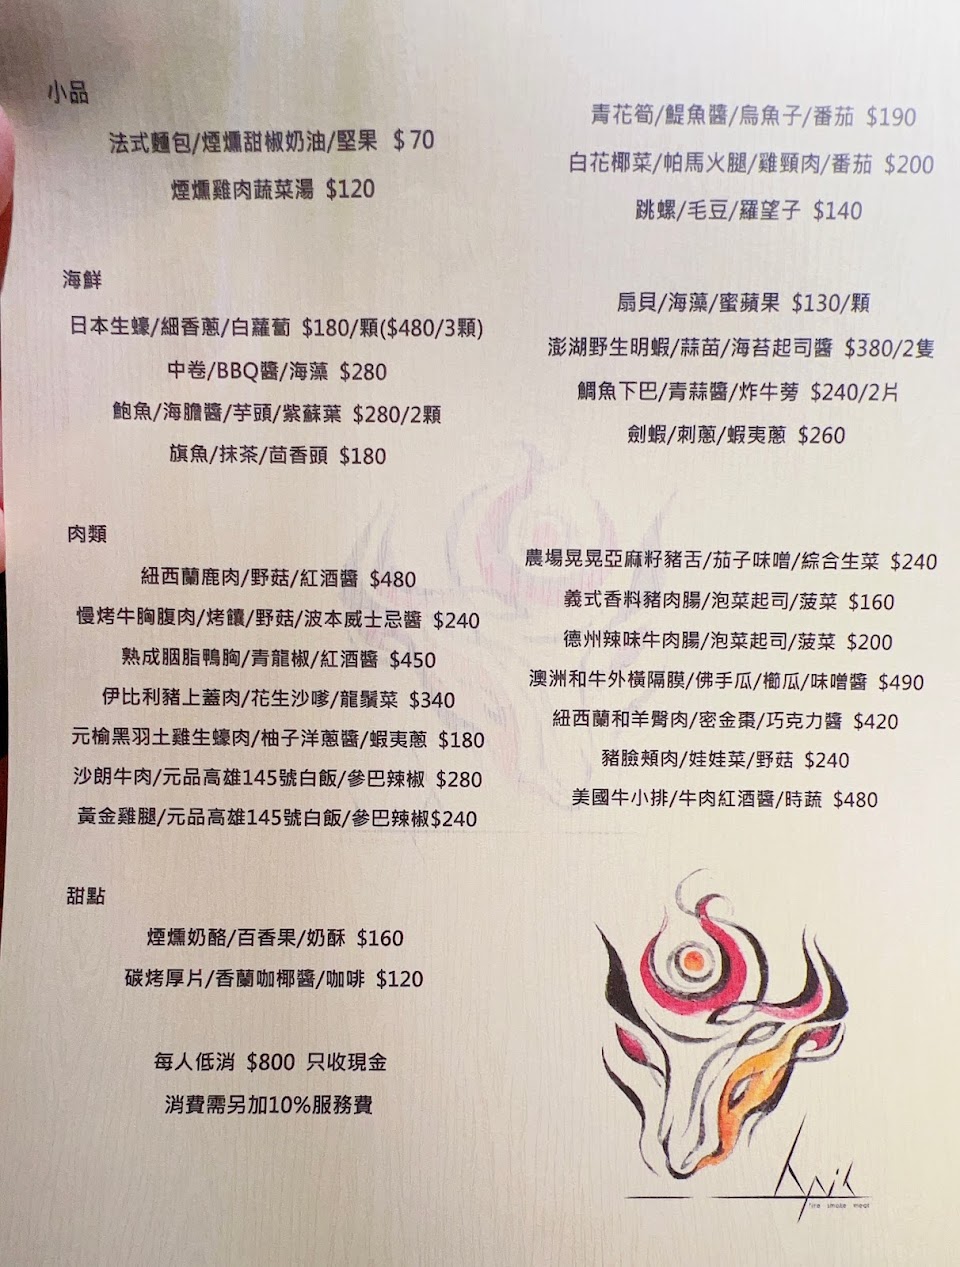 小品
法式麵包/煙燻甜椒奶油/堅果 $70
煙燻雞肉蔬菜湯 $120
青花筍/鯷魚醬/烏魚子/番茄 $190
白花椰菜/帕馬火腿/雞頸肉/番茄 $200
跳螺/毛豆/羅望子 $140
海鮮
日本生蠔/細香蔥/白蘿蔔 $180/顆($480/3顆)
中卷/BBQ醬/海藻 $280
鮑魚/海膽醬/芋頭/紫蘇葉 $280/2顆
旗魚/抹茶/茴香頭 $180
扇貝/海藻/蜜蘋果 $130/顆
澎湖野生明蝦/蒜苗/海苔起司醬 $380/2隻
鯛魚下巴/青蒜醬/炸牛蒡 $240/2片
劍蝦/刺蔥/蝦夷蔥 $260
肉類
紐西蘭鹿肉/野菇/紅酒醬 $480
慢烤牛胸腹肉/烤饢/野菇/波本威士忌醬 $240
熟成胭脂鴨胸/青龍椒/紅酒醬 $450
伊比利豬上蓋肉/花生沙嗲/龍鬚菜 $340
元榆黑羽土雞生蠔肉/柚子洋蔥醬/蝦夷蔥 $180
沙朗牛肉/元品高雄145號白飯/參巴辣椒 $280
黃金雞腿/元品高雄145號白飯/參巴辣椒$240
農場晃晃亞麻籽豬舌/茄子味噌/綜合生菜 $240
義式香料豬肉腸/泡菜起司/菠菜 $160
德州辣味牛肉腸/泡菜起司/菠菜 $200
澳洲和牛外橫隔膜/佛手瓜/櫛瓜/味噌醬 $490
紐西蘭和羊臀肉/密金棗/巧克力醬 $420
豬臉頰肉/娃娃菜/野菇 $240
美國牛小排/牛肉紅酒醬/時蔬 $480
甜點
煙燻奶酪/百香果/奶酥 $160
碳烤厚片/香蘭咖椰醬/咖啡 $120
每人低消 $800 只收現金
消費需另加10%服務費
fire smoke meat